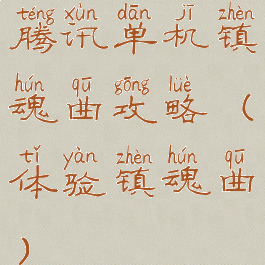 téng xùn dān jī zhèn
腾讯单机镇
hún qū gōng lüè
魂曲攻略（
tǐ yàn zhèn hún qū
体验镇魂曲
）